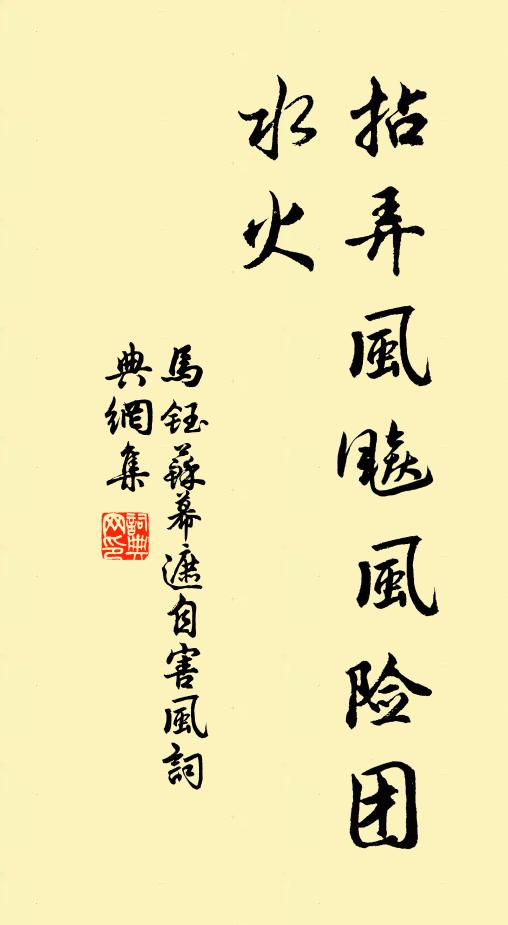 拈弄風風险团
水火
馬鈺蘇幕遮自害風詞
典網集
詞典
网印